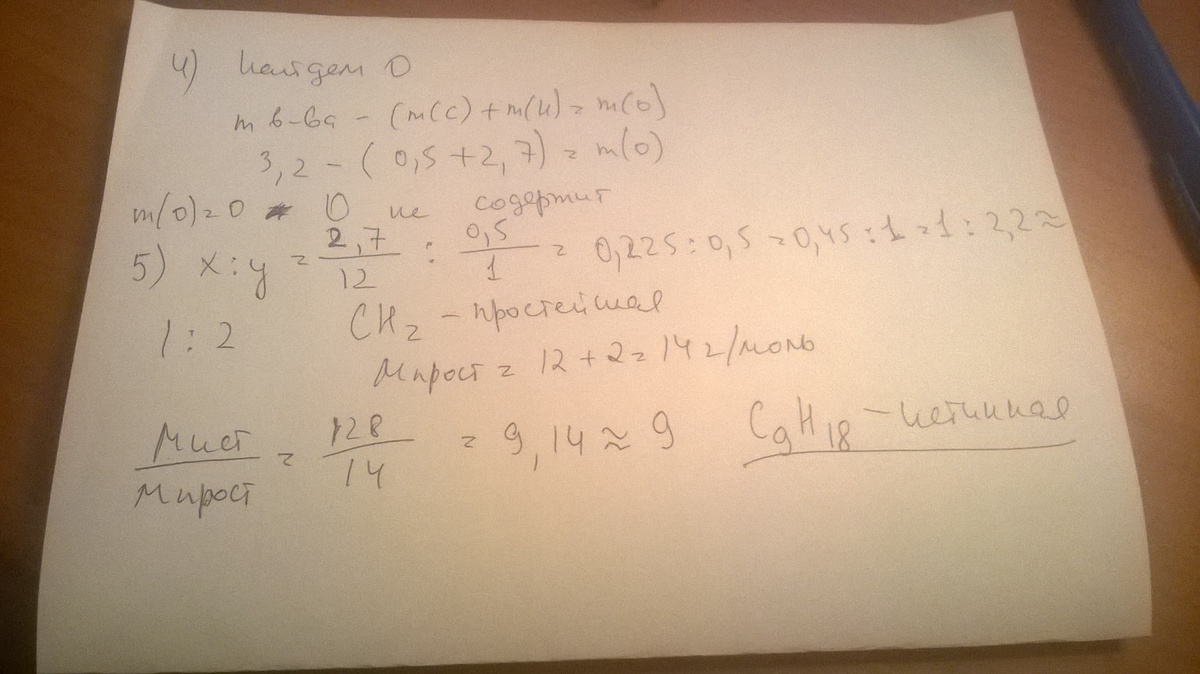 4) Найдем О
m в-ва - (m(C) + m(H) = m(O)
3,2 - (0,5 + 2,7) = m(O)
m(O) = 0 О не содержит
5) x : y = 2,7/12 : 0,5/1 = 0,225 : 0,5 = 0,45 : 1 = 1 : 2,2 ≈
1 : 2 CH₂ - простейшая
Mпрост = 12 + 2 = 14 г/моль
Mист/Mпрост = 128/14 = 9,14 ≈ 9 C₉H₁₈ - истинная